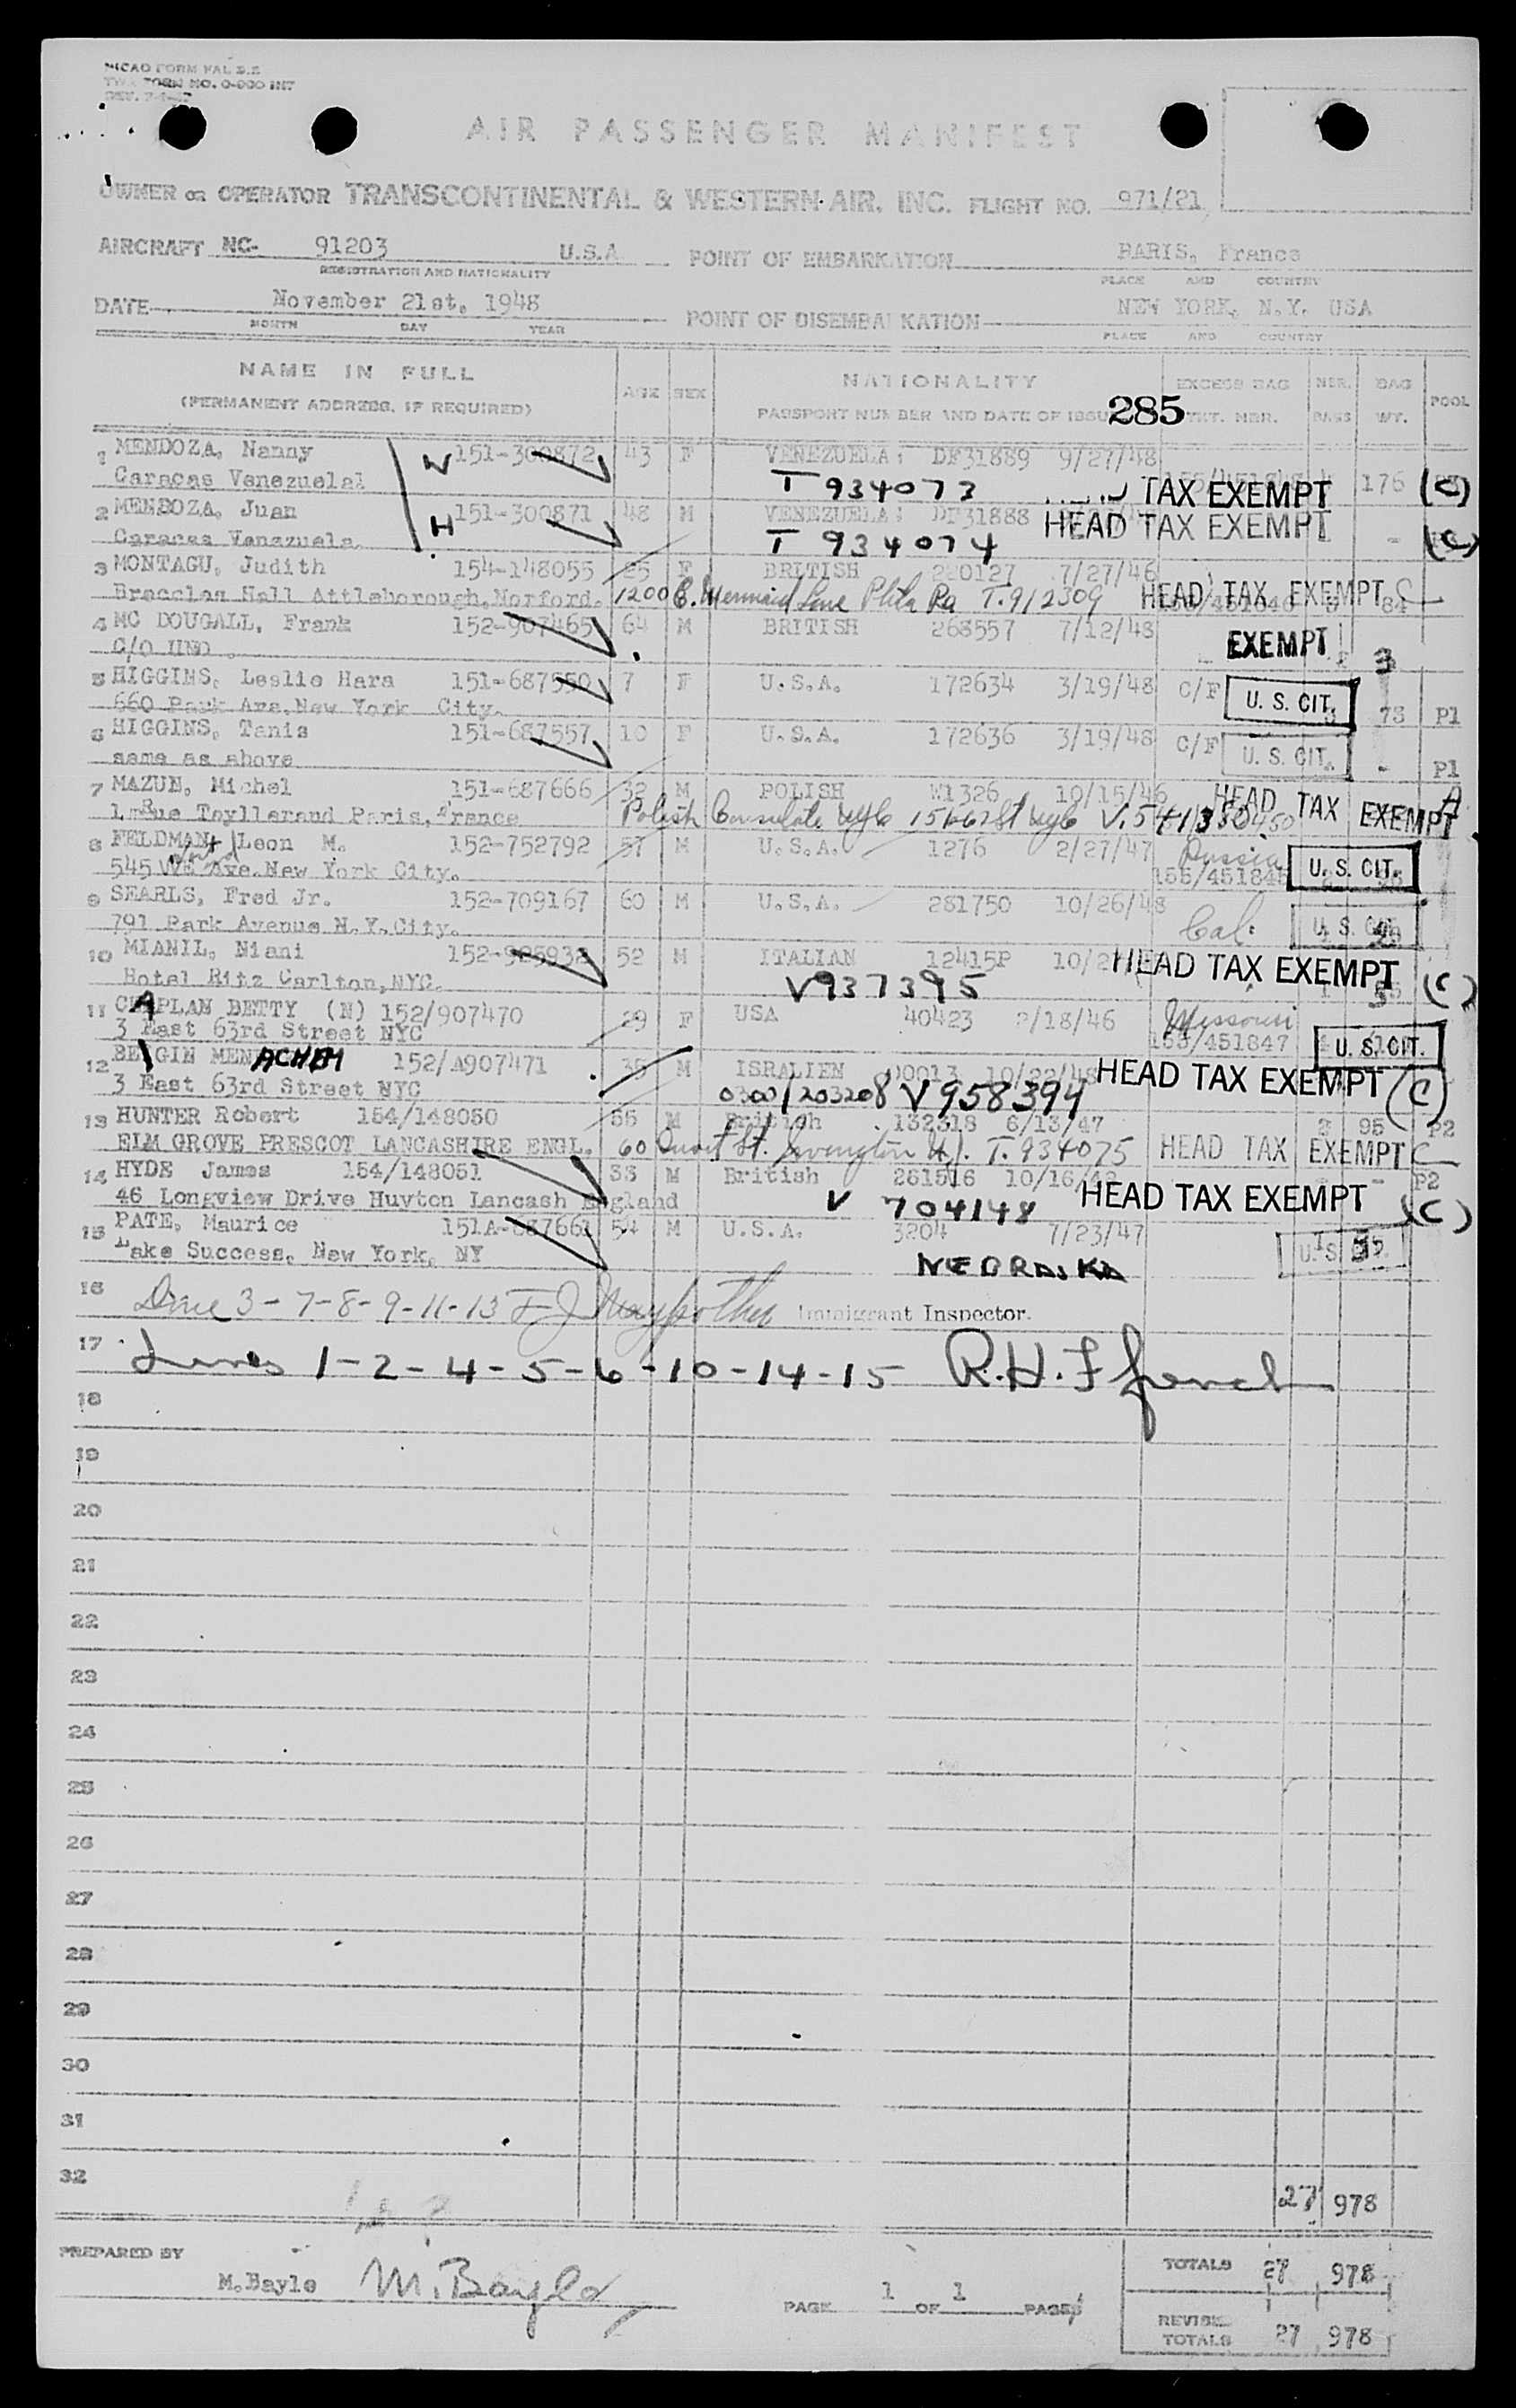 AIR PASSENGER MANIFEST
OWNER OR OPERATOR TRANSCONTINENTAL & WESTERN AIR, INC. FLIGHT NO. 971/21
AIRCRAFT NC- 91203 U.S.A POINT OF EMBARKATION PARIS, France
REGISTRATION AND NATIONALITY PLACE AND COUNTRY
DATE November 21st, 1948 POINT OF DISEMBARKATION NEW YORK, N.Y. USA
MONTH DAY YEAR PLACE AND COUNTRY
NAME IN FULL AGE SEX NATIONALITY EXCESS BAG NBR. BAG POOL
(PERMANENT ADDRESS, IF REQUIRED) PASSPORT NUMBER AND DATE OF ISSU 285 TKT. NBR. BAGS WT.
1 MENDOZA, Nanny W 151-300872 43 F VENEZUELA: DF31889 9/27/48
Caracas Venezuelal T 934073 TAX EXEMPT 176 (C)
2 MENDOZA, Juan H 151-300871 48 M VENEZUELA: DF31888 HEAD TAX EXEMPT
Caracas Venezuela. T 934074 - (C)
3 MONTAGU, Judith 154-148055 25 F BRITISH 220127 7/27/46
Braccles Hall Attleborough, Norford. 1200 E. Mermaid Lane Phila Pa T.912309 HEAD TAX EXEMPT 84 C
4 MC DOUGALL, Frank 152-907465 64 M BRITISH 268557 7/12/48
C/O UNO . EXEMPT 3
5 HIGGINS, Leslie Hara 151-687550 7 F U.S.A. 172634 3/19/48 C/F U. S. CIT.
660 Park Ave, New York City. 73 P1
6 HIGGINS, Tanis 151-687557 10 F U.S.A. 172636 3/19/48 C/F U. S. CIT.
same as above - P1
7 MAZUN, Michel 151-687666 32 M POLISH W1326 10/15/46 HEAD TAX EXEMPT A
1, Rue Tayllerand Paris, France Polish Consulate
8 FELDMAN, Leon M. 152-752792 57 M U.S.A. 1276 2/27/47 Russia U. S. CIT.
545 West Ave. New York City. 155/451846
9 SEARLS, Fred Jr. 152-709167 60 M U.S.A. 281750 10/26/48
791 Park Avenue N.Y. City. Cal.
10 MIANIL, Niani 152-925932 52 M ITALIAN 12415P HEAD TAX EXEMPT
Hotel Ritz Carlton, NYC. V937395 (C)
11 CHAPLAN BETTY (N) 152/907470 29 F USA 40423 2/18/46 Missouri
3 East 63rd Street NYC 155/451847 U. S. CIT.
12 BEIGIN MENACHEM 152/A907471 35 M ISRALIEN 00013 10/22/48 HEAD TAX EXEMPT (C)
3 East 63rd Street NYC 0300/203208 V958394
13 HUNTER Robert 154/148050 55 M British 132318 6/13/47 2 95 P2
ELM GROVE PRESCOT LANCASHIRE ENGL. T.934075 HEAD TAX EXEMPT C
14 HYDE James 154/148051 33 M British 261516 - P2
46 Longview Drive Huyton Lancash England V 704148 HEAD TAX EXEMPT (C)
15 PATE, Maurice 151A-687661 54 M U.S.A. 3204 7/23/47
Lake Success, New York, NY NEBRASKA
16 Line 3-7-8-9-11-13 Immigrant Inspector.
17 Lines 1-2-4-5-6-10-14-15 R.H. Ffrench
18
19
20
21
22
23
24
25
26
27
28
29
30
31
32 27 978
PREPARED BY M. Bayle M. Bayle
PAGE 1 OF 1 PAGES
TOTALS 27 978
REVISED TOTALS 27 978